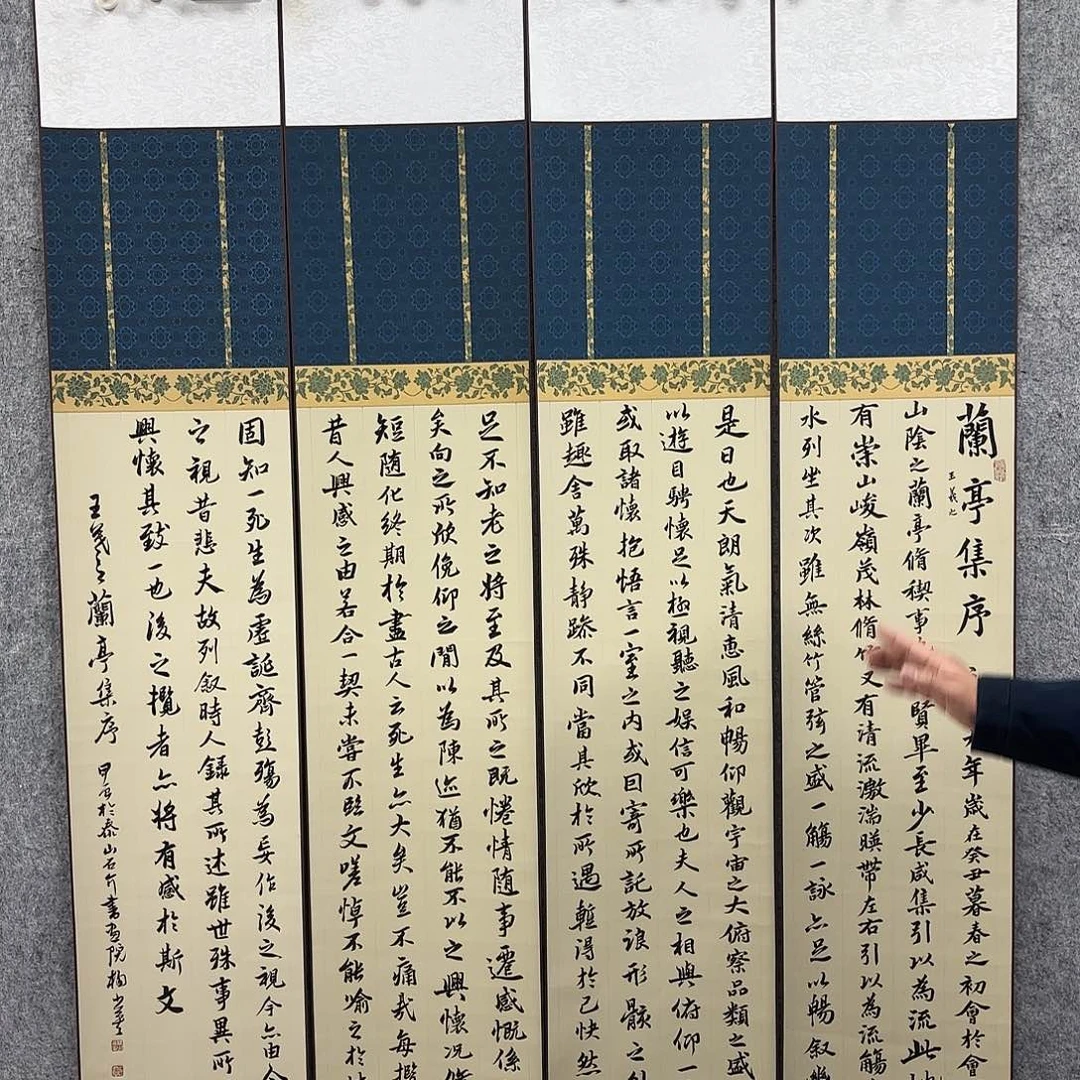 蘭亭集序
王羲之
年歲在癸丑暮春之初會於會
山陰之蘭亭脩禊事賢畢至少長咸集引以為流此地
有崇山峻嶺茂林脩竹又有清流激湍暎帶左右引以為流觴
水列坐其次雖無絲竹管弦之盛一觴一詠亦足以暢敘幽
是日也天朗氣清惠風和暢仰觀宇宙之大俯察品類之盛
以遊目騁懷足以極視聽之娛信可樂也夫人之相與俯仰一
或取諸懷抱悟言一室之内或因寄所託放浪形骸之外
雖趣舍萬殊静躁不同當其欣於所遇暫得於己快然
足不知老之將至及其所之既惓情随事遷感慨係
矣向之所欣俛仰之閒以為陳迹猶不能不以之興懷況脩
短随化終期於盡古人云死生亦大矣豈不痛哉每攬
昔人興感之由若合一契未嘗不臨文嗟悼不能喻之於
固知一死生為虛誕齊彭殤為妄作後之視今亦由今
之視昔悲夫故列敘時人錄其所述雖世殊事異所
興懷其致一也後之攬者亦將有感於斯文
王羲之蘭亭集序
於泰山石介書畫院楊